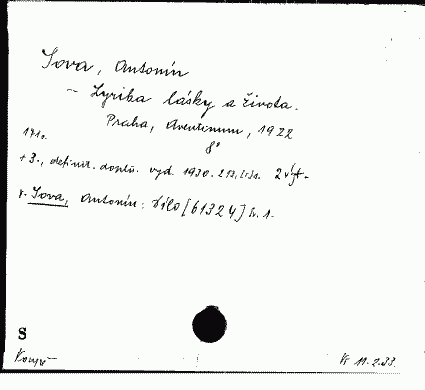 Sova, Antonín
– Lyrika lásky a života.
Praha, Aventinum, 1922
8°
171s.
+ 3., definit. doplň. vyd. 1930. 2 výt.
v. Sova, Antonín: Dílo [61324] sv. 1.
S
11.2.33.